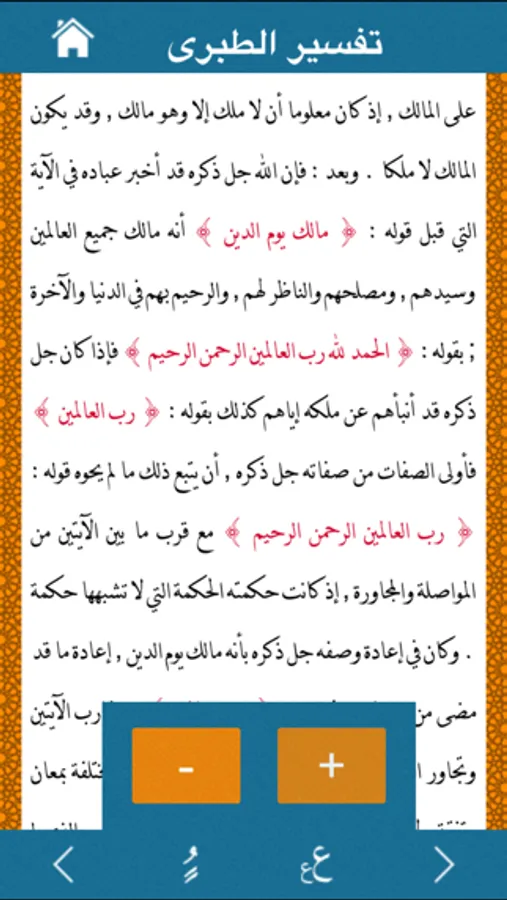 تفسير الطبرى
على المالك , إذ كان معلوما أن لا ملك إلا وهو مالك , وقد يكون
المالك لا ملكا . وبعد : فإن الله جل ذكره قد أخبر عباده في الآية
التي قبل قوله : ﴿ مالك يوم الدين ﴾ أنه مالك جميع العالمين
وسيدهم , ومصلحهم والناظر لهم , والرحيم بهم في الدنيا والآخرة
; بقوله : ﴿ الحمد لله رب العالمين الرحمن الرحيم ﴾ فإذا كان جل
ذكره قد أنبأهم عن ملكه إياهم كذلك بقوله : ﴿ رب العالمين ﴾
فأولى الصفات من صفاته جل ذكره , أن يتبع ذلك ما لم يحوه قوله :
﴿ رب العالمين الرحمن الرحيم ﴾ مع قرب ما بين الآيتين من
المواصلة والمجاورة , إذ كانت حكمته الحكمة التي لا تشبهها حكمة
. وكان في إعادة وصفه جل ذكره بأنه مالك يوم الدين , إعادة ما قد
مضى من رب الآيتين
وتجاور بمعان
- +
ع ع